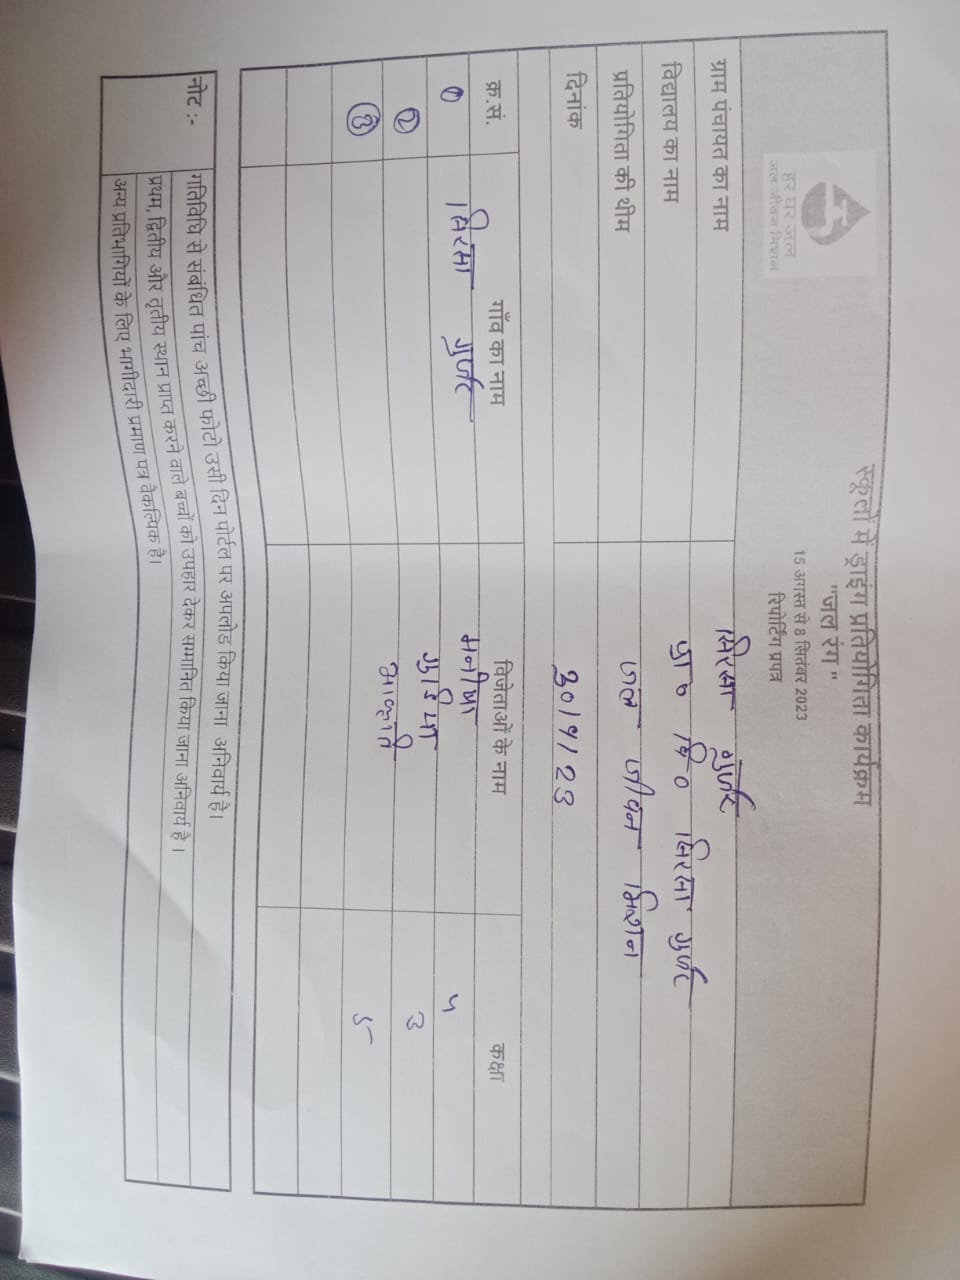 हर घर जल
जल जीवन मिशन
स्कूलों में ड्राइंग प्रतियोगिता कार्यक्रम
"जल रंग"
15 अगस्त से 8 सितंबर 2023
रिपोर्टिंग प्रपत्र
ग्राम पंचायत का नाम सिरसा गुर्जर
विद्यालय का नाम प्रा० वि० सिरसा गुर्जर
प्रतियोगिता की थीम जल जीवन मिशन
दिनांक
क्र.सं. गाँव का नाम विजेताओं के नाम कक्षा
① सिरसा गुर्जर मनीषा
② 3
③
नोट :- गतिविधि से संबंधित पांच अच्छी फोटो उसी दिन पोर्टल पर अपलोड किया जाना अनिवार्य है।
प्रथम, द्वितीय और तृतीय स्थान प्राप्त करने वाले बच्चों को उपहार देकर सम्मानित किया जाना अनिवार्य है ।
अन्य प्रतिभागियों के लिए भागीदारी प्रमाण पत्र वैकल्पिक है।